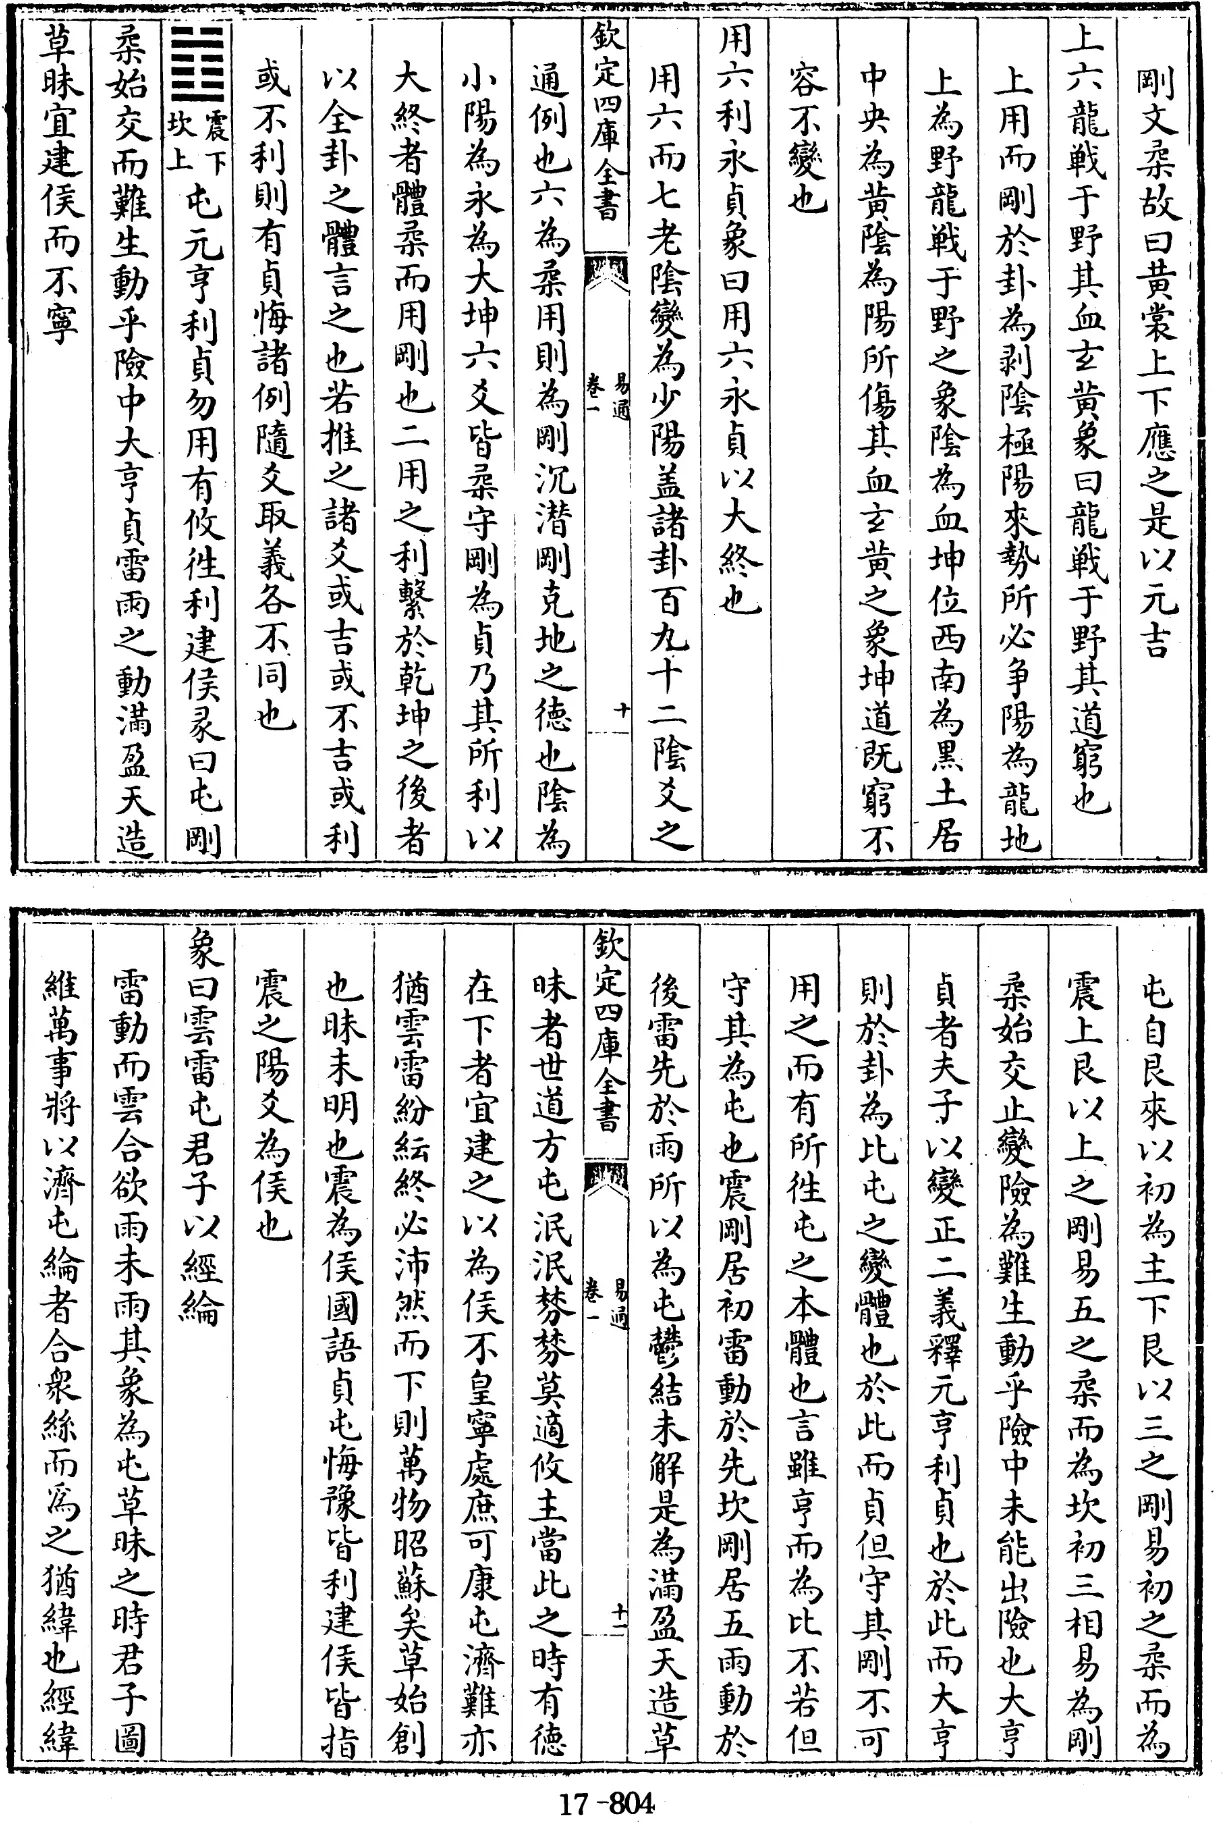 剛文柔故曰黄裳上下應之是以元吉
上六龍戰于野其血玄黄象曰龍戰于野其道窮也
上用而剛於卦為剥陰極陽來勢所必争陽為龍地
上為野龍戰于野之象陰為血坤位西南為黒土居
中央為黄陰為陽所傷其血玄黄之象坤道既窮不
容不變也
用六利永貞象曰用六永貞以大終也
用六而七老陰變為少陽盖諸卦百九十二陰爻之
欽定四庫全書
易通
卷一
十
通例也六為柔用則為剛沉潜剛克地之德也陰為
小陽為永為大坤六爻皆柔守剛為貞乃其所利以
大終者體柔而用剛也二用之利繫於乾坤之後者
以全卦之體言之也若推之諸爻或吉或不吉或利
或不利則有貞悔諸例隨爻取義各不同也
震下
坎上
屯元亨利貞勿用有攸往利建侯彖曰屯剛
柔始交而難生動乎險中大亨貞雷雨之動滿盈天造
草昧宜建侯而不寧
屯自艮來以初為主下艮以三之剛易初之柔而為
震上艮以上之剛易五之柔而為坎初三相易為剛
柔始交止變險為難生動乎險中未能出險也大亨
貞者夫子以變正二義釋元亨利貞也於此而大亨
則於卦為比屯之變體也於此而貞但守其剛不可
用之而有所往屯之本體也言雖亨而為比不若但
守其為屯也震剛居初雷動於先坎剛居五雨動於
後雷先於雨所以為屯鬱結未解是為滿盈天造草
欽定四庫全書
易通
卷一
十一
昧者世道方屯泯泯棼棼莫適攸主當此之時有德
在下者宜建之以為侯不皇寧處庶可康屯濟難亦
猶雲雷紛紜終必沛然而下則萬物昭蘇矣草始創
也昧未明也震為侯國語貞屯悔豫皆利建侯皆指
震之陽爻為侯也
象曰雲雷屯君子以經綸
雷動而雲合欲雨未雨其象為屯草昧之時君子圖
維萬事將以濟屯綸者合衆絲而為之猶緯也經緯
17-804